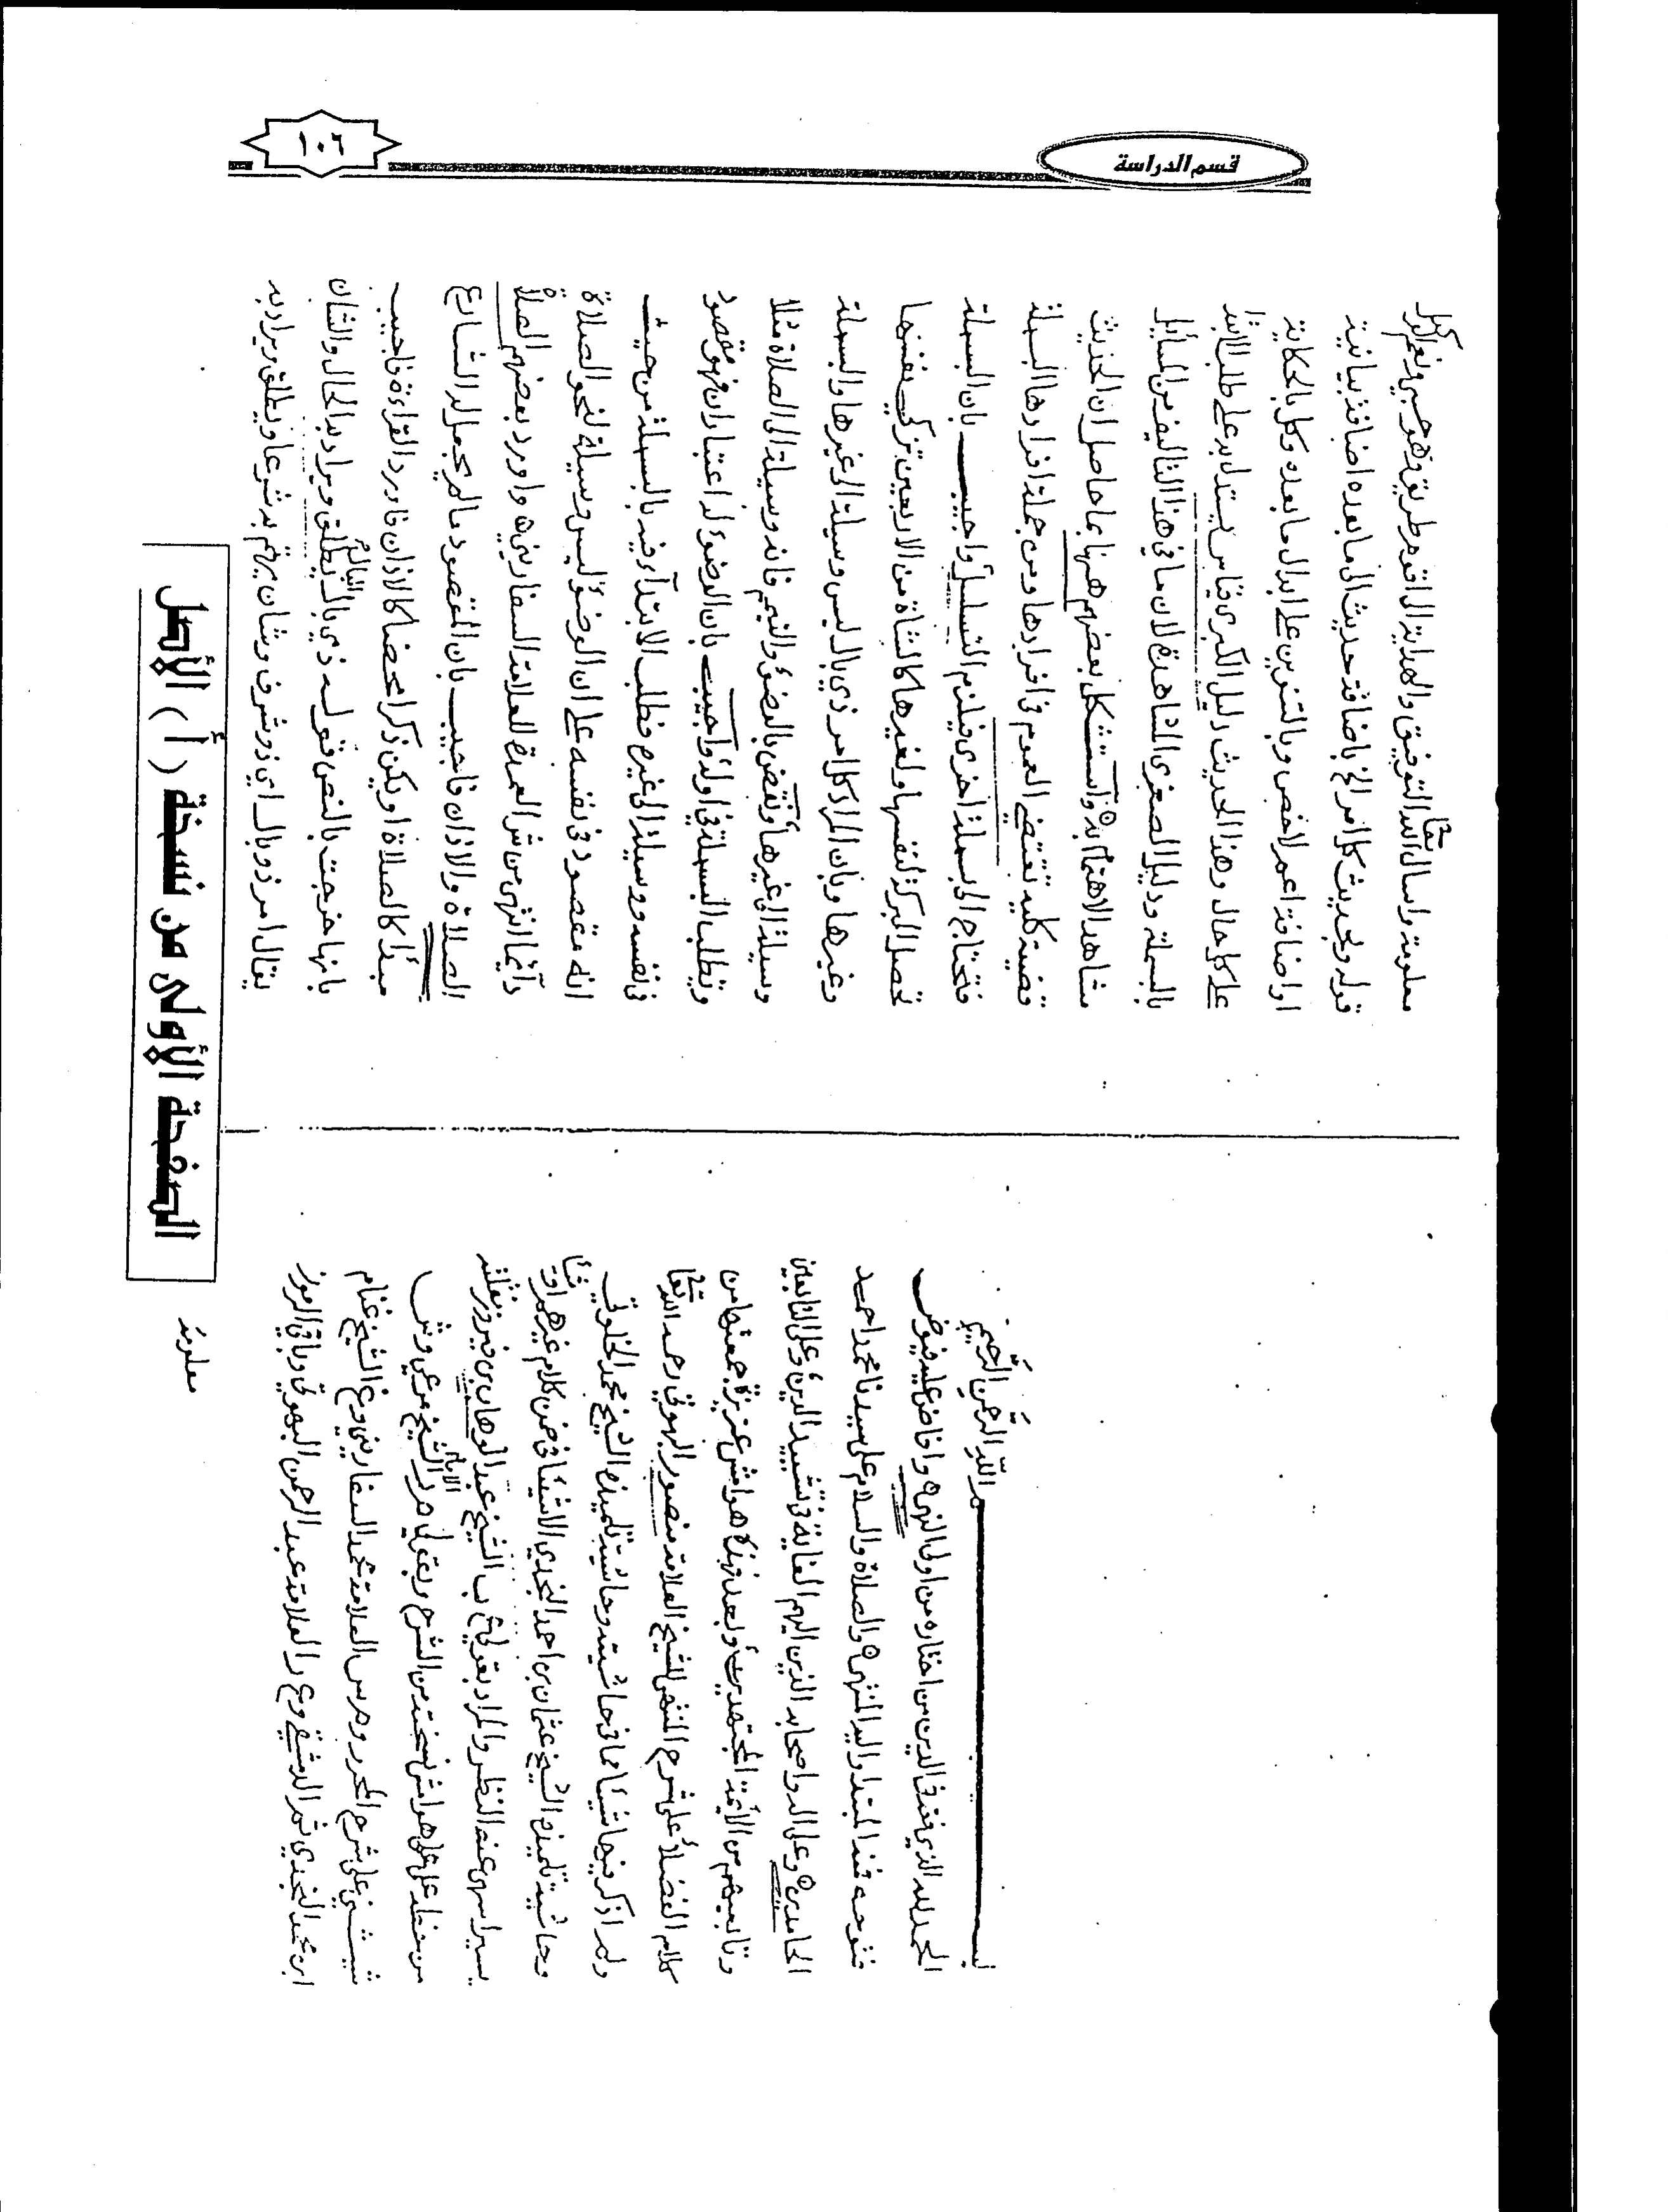 قسم الدراسة
١٠٦
بسم الله الرحمن الرحيم
الحمد لله الذي فقه في الدين من اختاره من اولى النهى وافاض عليه فيوض
فتوحه فنعم المبتدا واليه المنتهى والصلاة والسلام على سيدنا محمد احمد
الحامدين وعلى اله واصحابه الذين اليهم الغاية في تشييد الدين وعلى التابعين
وتابعيهم من الأيمة المجتهدين وبعد فهذه هوامش عزيزة جمعتها من
كلام الفضلاء على شرح المنتهى للشيخ العلامة منصور البهوتي رحمه الله تعا
ولم اذكر فيها شيئا مما في حاشيته وحاشية تلميذه الشيخ محمد الخلوتي
وحاشية تلميذه الشيخ عثمان بن احمد النجدي الا شيئا في ضمن كلام غيرهم او شيئا
يسيرا سهى عنه النظر والمراد بقولي ع ب الشيخ عبد الوهاب بن فيروز نقلته
من خطه على هوامش نسخته من الشرح وبقولي م ر الشيخ مرعي و ش
شيشني على شرح المحرر و م س العلامة محمد السفاريني و غ الشيخ غنام
ابن محمد النجدي ثم الدمشقي و ع ر العلامة عبد الرحمن البهوتي وباقي الرموز
معلومة
معلومة واسال الله تعا التوفيق والهداية الى اقوم طريق وهو حسبي ونعم الوكيل
قوله وبحديث كل امر الخ باضافة حديث الى ما بعده اضافة بيانية
او اضافة اعم لاخص وبالتنوين على ابدال ما بعده وكل بالحكاية
على كل حال وهذا الحديث دليل الكبرى قياس يستدل به على طلب الابتدا
بالبسملة ودليل الصغرى المشاهدة لان ما في هذا التاليف من المسائل
مشاهد الاهتمام به واستشكل بعضهم هنا بما حاصله ان الحديث
قضية كلية تقتضي العموم في افرادها ومن جملة افرادها البسملة
فتحتاج الى بسملة اخرى فيلزم التسلسل واجيب بان البسملة
تحصل البركة لنفسها ولغيرها كالشاة من الاربعين تزكي نفسها
وغيرها وبان المراد كل امر ذي بال ليس وسيلة الى غيرها والبسملة
وسيلة الى غيرها ونقض بالوضوء والتيمم فانه وسيلة الى الصلاة مثلا
وتطلب البسملة في اوله واجيب بان الوضوء له اعتباران فهو مقصود
في نفسه ووسيلة الى غيره فطلب الابتداء فيه بالبسملة من حيث
انه مقصود في نفسه على ان الوضوء ليس وسيلة لنحو الصلاة
دائما انتهى من شرح العمدة للعلامة السفاريني واورد بعضهم الصلاة
الصلاة والاذان فاجيب بان المقصود ما لم يجعل له الشارع
مبدأ كالصلاة او يكن ذكرا محضا كالاذان فاورد القراءة فاجيب
بانها خرجت بالنص قوله ذي بال البال يطلق ويراد به الحال والشان
يقال امر ذو بال اي ذو شرف وشان يهتم به شرعا ويطلق ويراد به
الصفحة الأولى من نسخة (أ) الأصل